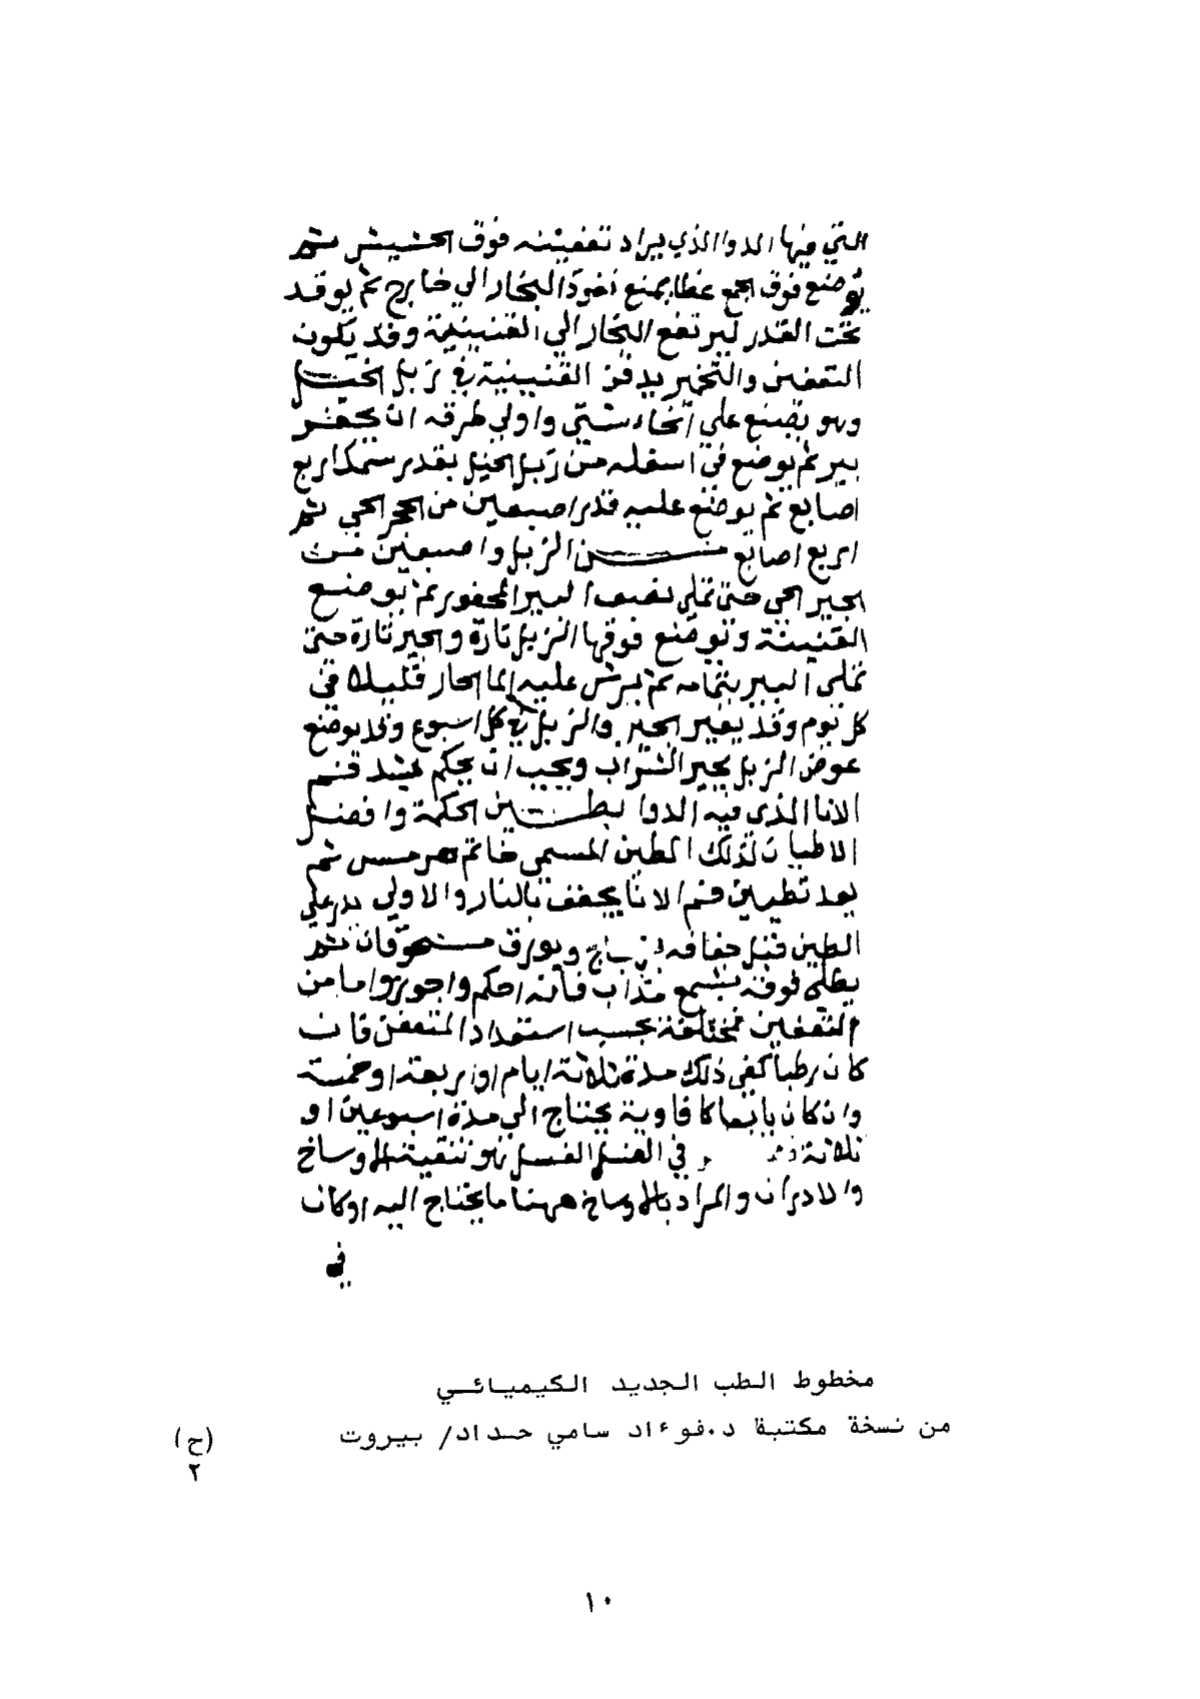 التي فيها الدوا الذي يراد تعفينه فوق الحشيش ثم
يوضع فوق الجميع غطا يمنع نفوذ البخار الي خارج ثم يوقد
تحت القدر ليرتفع البخار الي القنينة وقد يكون
التعفين والتخمير بدفن القنينة في زبل الخيل
وهو يصنع علي انحاء شتي واولي طرقه ان يحفر
بير ثم يوضع في اسفله من زبل الخيل بقدر سمك اربع
اصابع ثم يوضع عليه قدر اصبعين من الحجر الحي ثم
اربع اصابع من الزبل واصبعين من
الجير الحي حتي تملي نصف البير المحفور ثم توضع
القنينة وتوضع فوقها الزبل تارة والجير تارة حتي
تملي البير بتمامه ثم يرش عليه الما الحار قليلا في
كل يوم وقد يغير الجير والزبل في كل اسبوع وقد يوضع
عوض الزبل بجير الشراب ويجب ان يحكم شد فم
الانا الذي فيه الدوا بطين الحكمة وافضل
الاطيان لذلك الطين المسمي خاتم هرمس ثم
بعد تطيين فم الانا يجفف بالنار والاولي يدر علي
الطين قبل جفافه زجاج وبورق مسحوقان ثم
يطلي فوقه بشمع مذاب فانه احكم واجود واما من
التعفين مختلفة بحسب استعداد المتعفن فان
كان رطبا كفي ذلك مدة ثلاثة ايام او اربعة او خمسة
وان كان يابسا كافاوية يحتاج الي مدة اسبوعين او
ثلاثة في الغسل الغسل هو تنقية الاوساخ
والادران والمراد بالاوساخ ههنا ما يحتاج اليه اوكان
في
مخطوط الطب الجديد الكيميائي
من نسخة مكتبة د.فوءاد سامي حداد/ بيروت
(ح)
٢
١٠